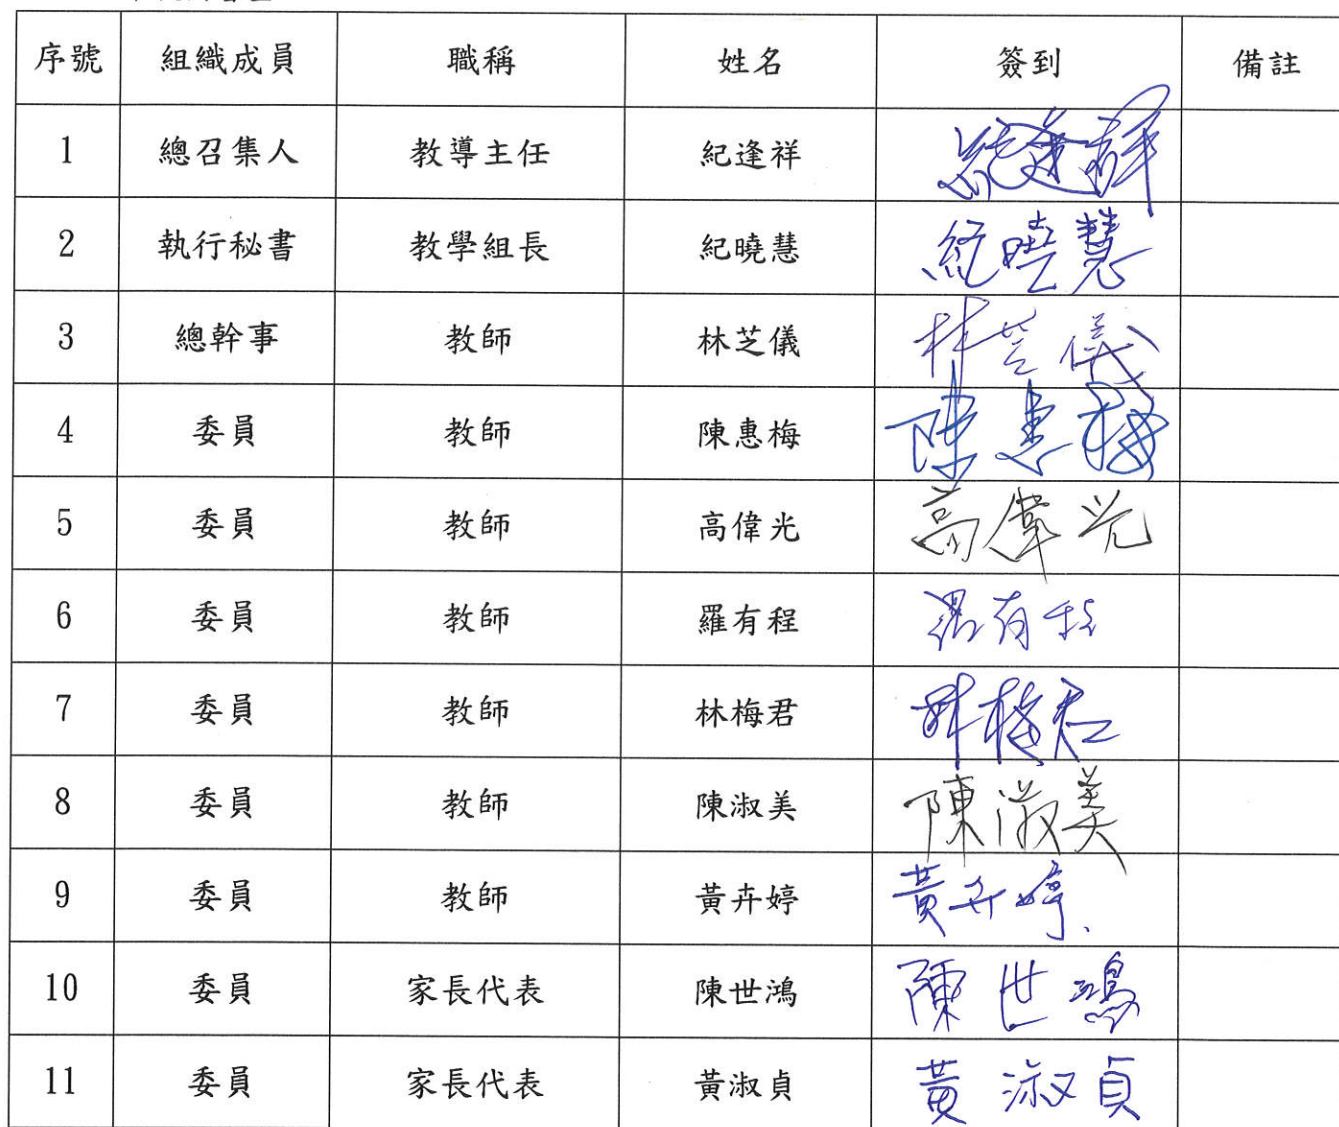 序號 組織成員 職稱 姓名 簽到 備註
1 總召集人 教導主任 紀逢祥 紀逢祥
2 執行秘書 教學組長 紀曉慧 紀曉慧
3 總幹事 教師 林芝儀 林芝儀
4 委員 教師 陳惠梅 陳惠梅
5 委員 教師 高偉光 高偉光
6 委員 教師 羅有程 羅有程
7 委員 教師 林梅君 林梅君
8 委員 教師 陳淑美 陳淑美
9 委員 教師 黃卉婷 黃卉婷
10 委員 家長代表 陳世鴻 陳世鴻
11 委員 家長代表 黃淑貞 黃淑貞